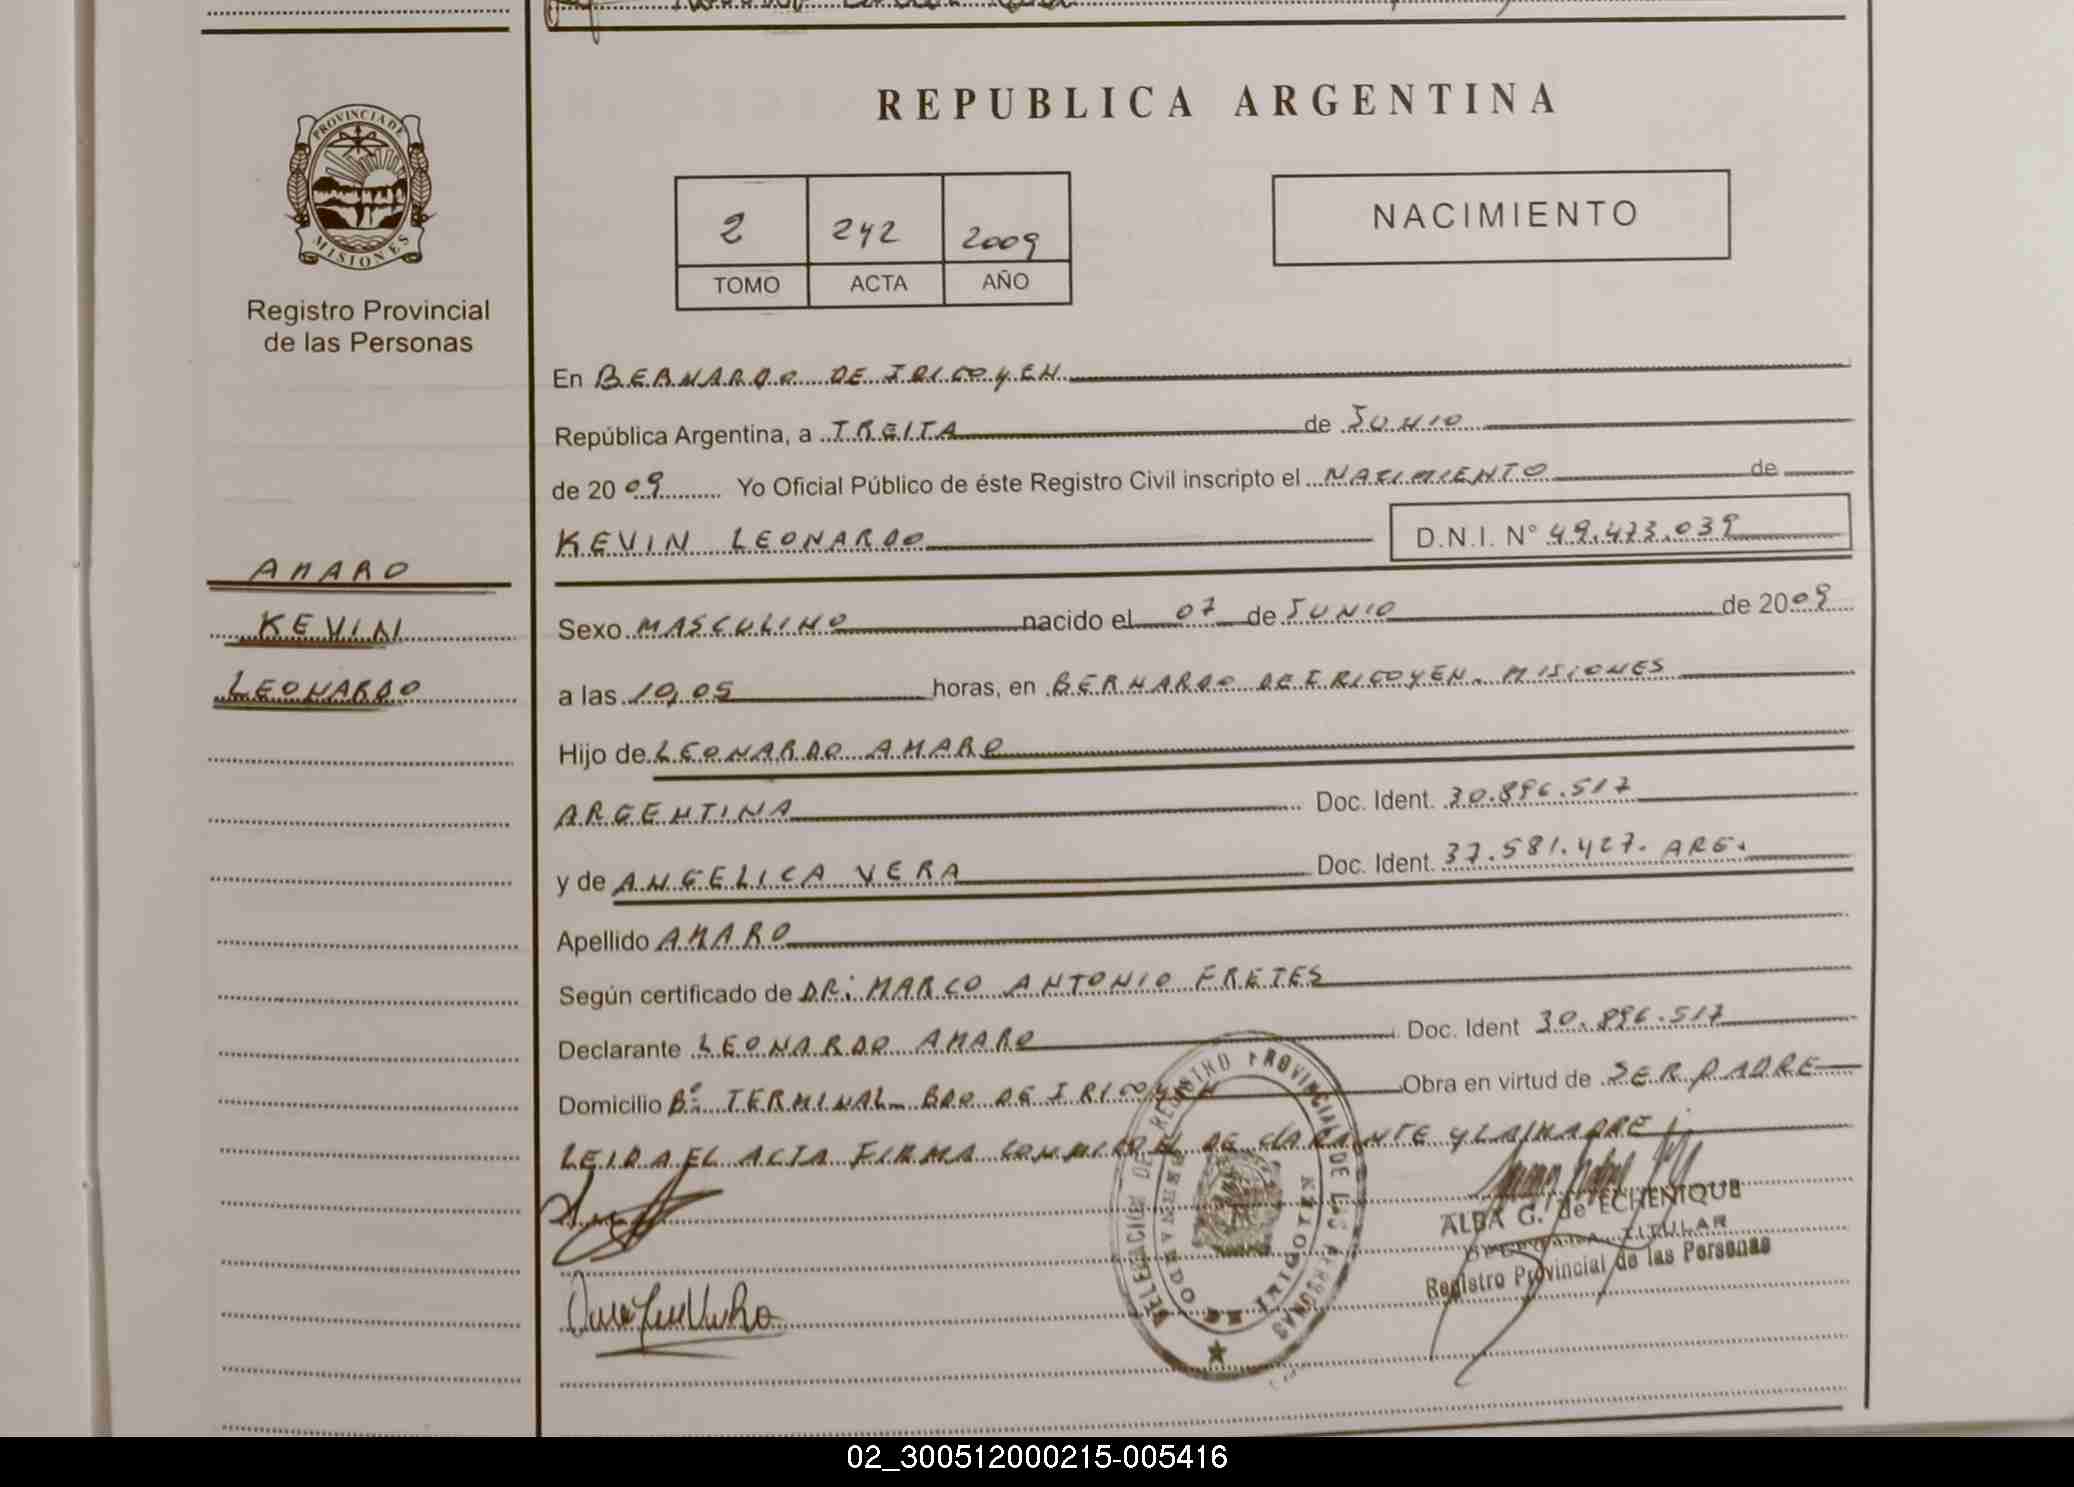 REPUBLICA ARGENTINA
PROVINCIA DE
MISIONES
Registro Provincial
de las Personas
2 242 2009
TOMO ACTA AÑO
NACIMIENTO
En BERNARDO DE IRIGOYEN
República Argentina, a TREITA de JUNIO
de 2009 Yo Oficial Público de éste Registro Civil inscripto el NACIMIENTO de
KEVIN LEONARDO D.N.I. N° 49.473.039
AMARO
KEVIN
LEONARDO
Sexo MASCULINO nacido el 07 de JUNIO de 2009
a las 10,05 horas, en BERNARDO DE IRIGOYEN. MISIONES
Hijo de LEONARDO AMARO
ARGENTINA Doc. Ident. 30.896.517
y de ANGELICA VERA Doc. Ident. 37.581.427. ARG.
Apellido AMARO
Según certificado de DR: MARCO ANTONIO FRETES
Declarante LEONARDO AMARO Doc. Ident 30.896.517
Domicilio Bº: TERMINAL BDO DE IRIGOYEN Obra en virtud de SER PADRE
LEIDA EL ACTA FIRMA CONMIGO EL DECLARANTE Y LA MADRE
DELEGACION DE REGISTRO PROVINCIAL DE LAS PERSONAS
BERNARDO DE IRIGOYEN
ALBA G. de ECHENIQUE
TITULAR
Registro Provincial de las Personas
02_300512000215-005416